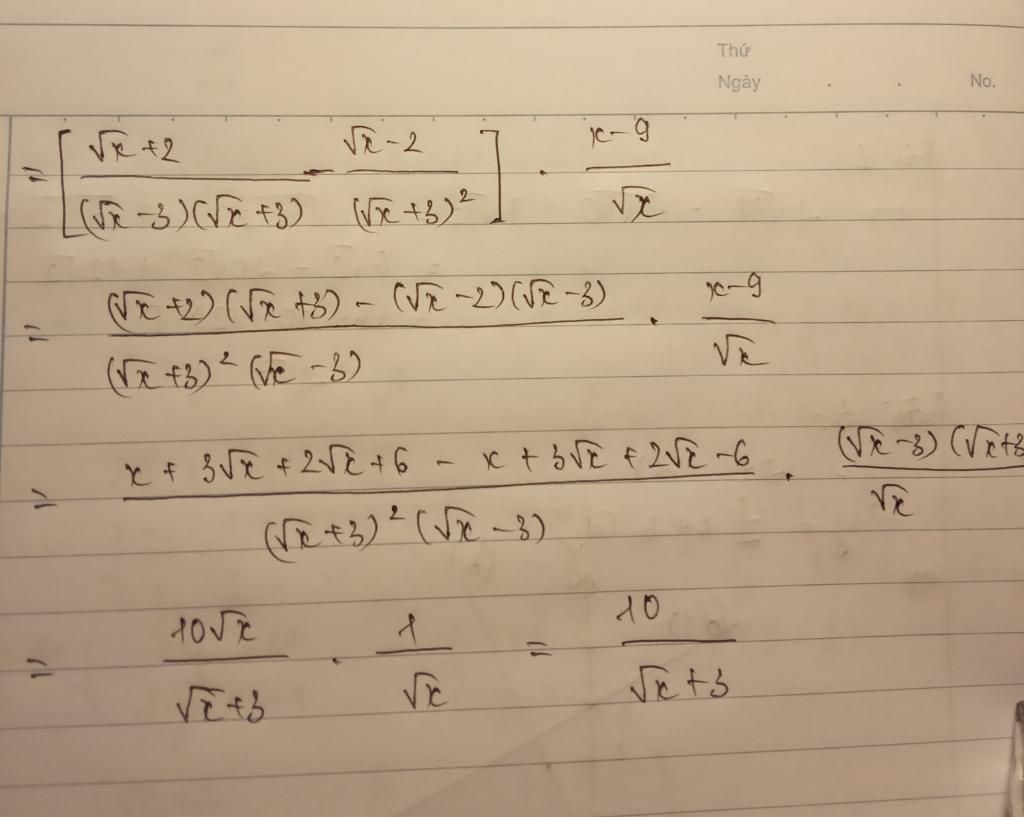 Thứ
Ngày . . No.
= [ (√x + 2) / ((√x - 3)(√x + 3)) - (√x - 2) / (√x + 3)² ] . (x - 9) / √x
= ((√x + 2)(√x + 3) - (√x - 2)(√x - 3)) / ((√x + 3)² (√x - 3)) . (x - 9) / √x
= (x + 3√x + 2√x + 6 - x + 3√x + 2√x - 6) / ((√x + 3)² (√x - 3)) . (√x - 3)(√x + 3 / √x
= 10√x / (√x + 3) . 1 / √x = 10 / (√x + 3)